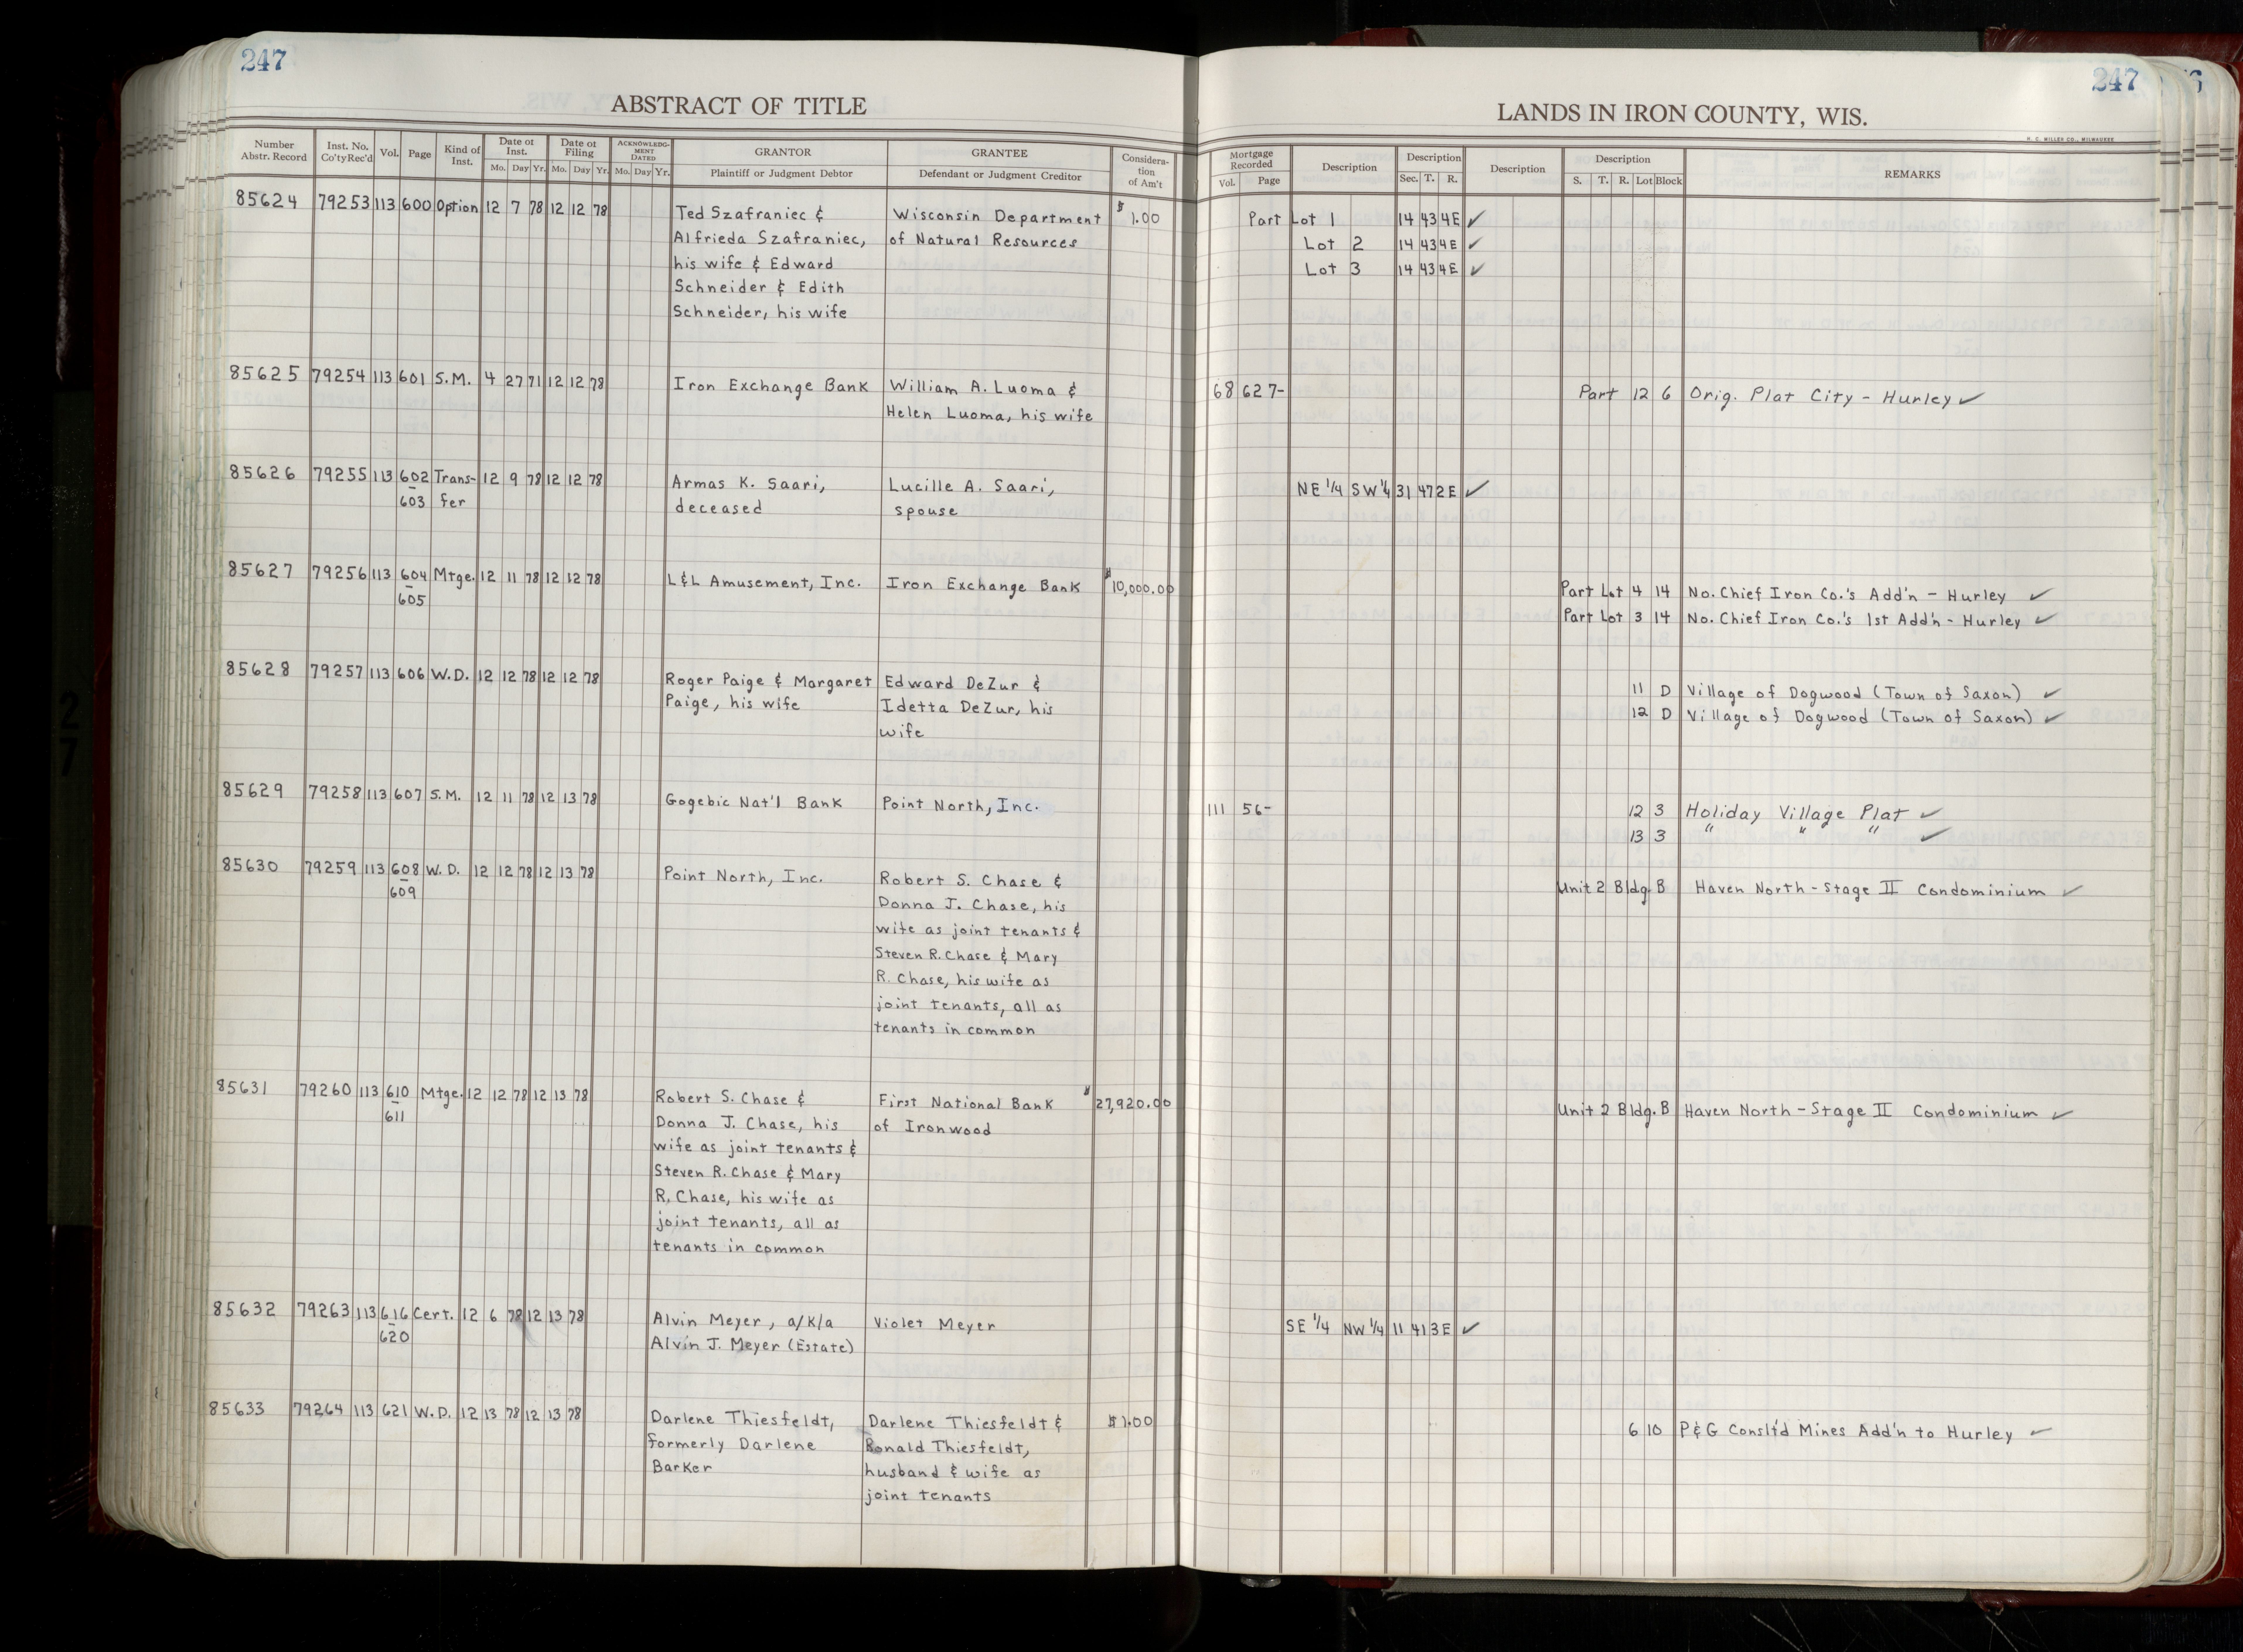 247
ABSTRACT OF TITLE
Number Abstr. Record | Inst. No. Co'ty Rec'd | Vol. | Page | Kind of Inst. | Date of Inst. Mo. Day Yr. | Date of Filing Mo. Day Yr. | ACKNOWLEDGMENT DATED Mo. Day Yr. | GRANTOR Plaintiff or Judgment Debtor | GRANTEE Defendant or Judgment Creditor | Consideration of Am't
247
LANDS IN IRON COUNTY, WIS.
H. C. MILLER CO., MILWAUKEE
Mortgage Recorded Vol. Page | Description | Description Sec. T. R. | Description | Description S. T. R. Lot Block | REMARKS
85624 79253 113 600 Option 12 7 78 12 12 78 Ted Szafraniec & Wisconsin Department $1.00 Part Lot 1 14 43 4E ✓
Alfrieda Szafraniec, of Natural Resources Lot 2 14 43 4E ✓
his wife & Edward Lot 3 14 43 4E ✓
Schneider & Edith
Schneider, his wife
85625 79254 113 601 S.M. 4 27 71 12 12 78 Iron Exchange Bank William A. Luoma & 68 627- Part 12 6 Orig. Plat City - Hurley ✓
Helen Luoma, his wife
85626 79255 113 602 Trans- 12 9 78 12 12 78 Armas K. Saari, Lucille A. Saari, NE 1/4 SW 1/4 31 47 2E ✓
603 fer deceased spouse
85627 79256 113 604 Mtge. 12 11 78 12 12 78 L&L Amusement, Inc. Iron Exchange Bank $10,000.00 Part Lot 4 14 No. Chief Iron Co.'s Add'n - Hurley ✓
605 Part Lot 3 14 No. Chief Iron Co.'s 1st Add'n - Hurley ✓
85628 79257 113 606 W.D. 12 12 78 12 12 78 Roger Paige & Margaret Edward DeZur & 11 D Village of Dogwood (Town of Saxon) ✓
Paige, his wife Idetta DeZur, his 12 D Village of Dogwood (Town of Saxon) ✓
wife
85629 79258 113 607 S.M. 12 11 78 12 13 78 Gogebic Nat'l Bank Point North, Inc. 111 56- 12 3 Holiday Village Plat ✓
13 3 " " " ✓
85630 79259 113 608 W.D. 12 12 78 12 13 78 Point North, Inc. Robert S. Chase & Unit 2 Bldg. B Haven North - Stage II Condominium ✓
609 Donna J. Chase, his
wife as joint tenants &
Steven R. Chase & Mary
R. Chase, his wife as
joint tenants, all as
tenants in common
85631 79260 113 610 Mtge. 12 12 78 12 13 78 Robert S. Chase & First National Bank $27,920.00 Unit 2 Bldg. B Haven North - Stage II Condominium ✓
611 Donna J. Chase, his of Ironwood
wife as joint tenants &
Steven R. Chase & Mary
R. Chase, his wife as
joint tenants, all as
tenants in common
85632 79263 113 616 Cert. 12 6 78 12 13 78 Alvin Meyer, a/k/a Violet Meyer SE 1/4 NW 1/4 11 41 3E ✓
620 Alvin J. Meyer (Estate)
85633 79264 113 621 W.D. 12 13 78 12 13 78 Darlene Thiesfeldt, Darlene Thiesfeldt & $1.00 6 10 P&G Consl'd Mines Add'n to Hurley ✓
formerly Darlene Ronald Thiesfeldt,
Barker husband & wife as
joint tenants